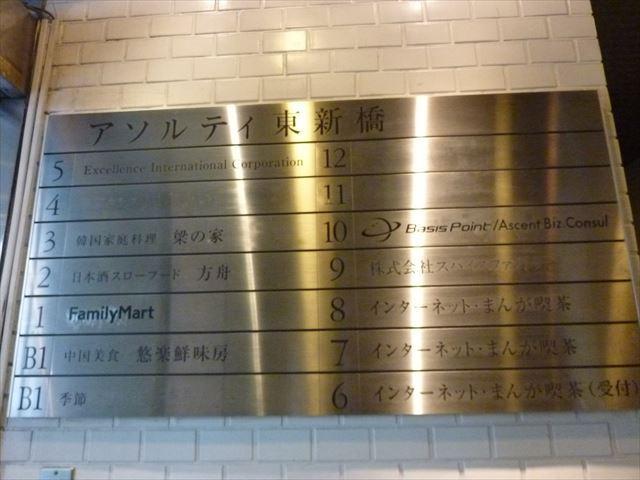 アソルティ東新橋
5 Excellence International Corporation
4
3 韓国家庭料理 梁の家
2 日本酒スローフード 方舟
1 FamilyMart
B1 中国美食 悠楽鮮味房
B1 季節
12
11
10 Basis Point/Ascent Biz.Consul
9 株式会社スパイスファクトリー
8 インターネット・まんが喫茶
7 インターネット・まんが喫茶
6 インターネット・まんが喫茶(受付)